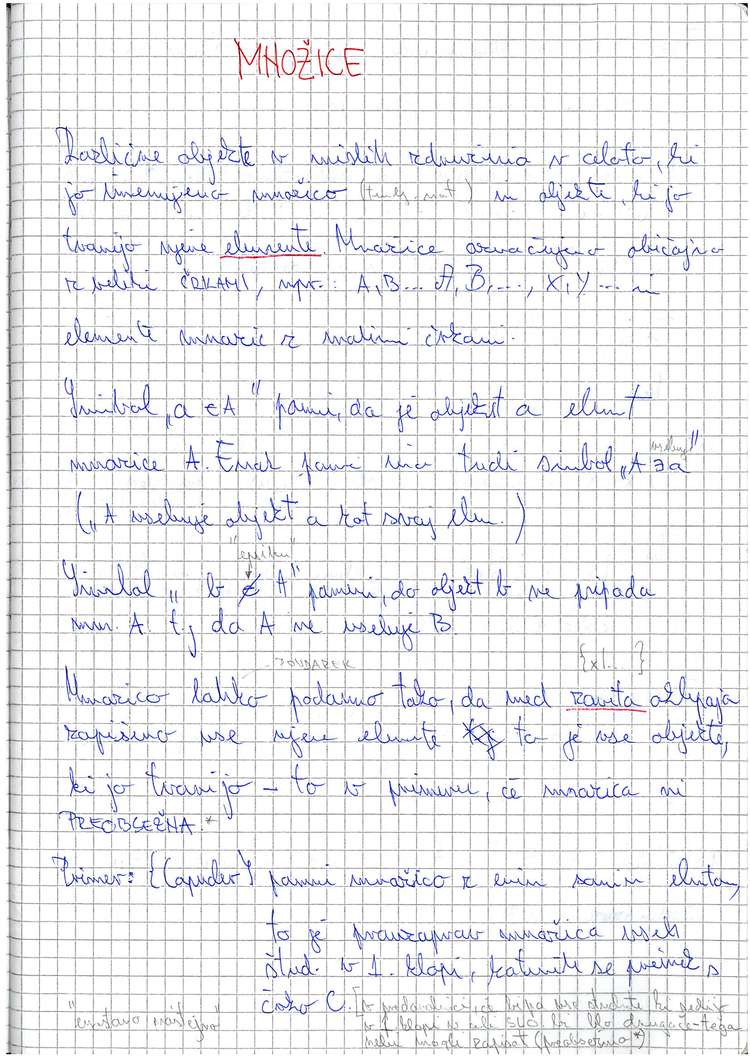 MNOŽICE
Različne objekte v mislih združimo v celoto, ki
jo imenujemo množico in objekte, ki jo
tvorijo njene elemente. Množice označujemo običajno
z veliki ČRKAMI, npr.: A, B... A, B, ..., X, Y ... in
elemente množic z malimi črkami.
Simbol „a ∈ A" pomeni, da je objekt a elemt
množice A. Enak pomen ima tudi simbol „A ∋ a"
vsebuje
(„A vsebuje objekt a kot svoj elem.)
Simbol „b ∉ A" pomeni, da objekt b ne pripada
mn. A. t.j. da A ne vsebuje B.
POUDAREK
{x|... }
Množico lahko podamo tako, da med zavita oklepaja
zapišemo vse njene elemente to je vse objekte,
ki jo tvorijo – to v primeru, če množica ni
PREOBSEŽNA.*
Primer: {Capuder} pomeni množico z enim samim elmtom,
to je pravzaprav množica vseh
štud. v 1. klopi, katerih se priimek s
črko C. [v predavalnici, če bi pa vse študente ki sedijo
"enostavno naštejemo"
v 1 klopi v celi SLO bi blo drugače-tega
nebi mogli zapisat (preobsežna*)]